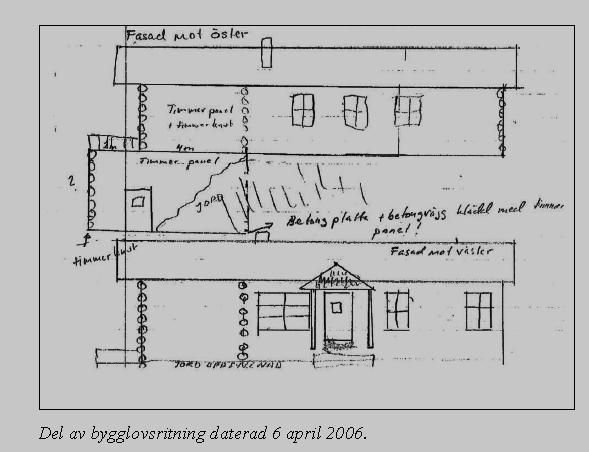 Fasad mot öster
Timmerpanel
+ timmerknut
2m
4m
Timmer panel
2
JORD
Betong platta + betongvägg klädd med timmer
panel!
timmerknut
Fasad mot väster
JORD
Del av bygglovsritning daterad 6 april 2006.